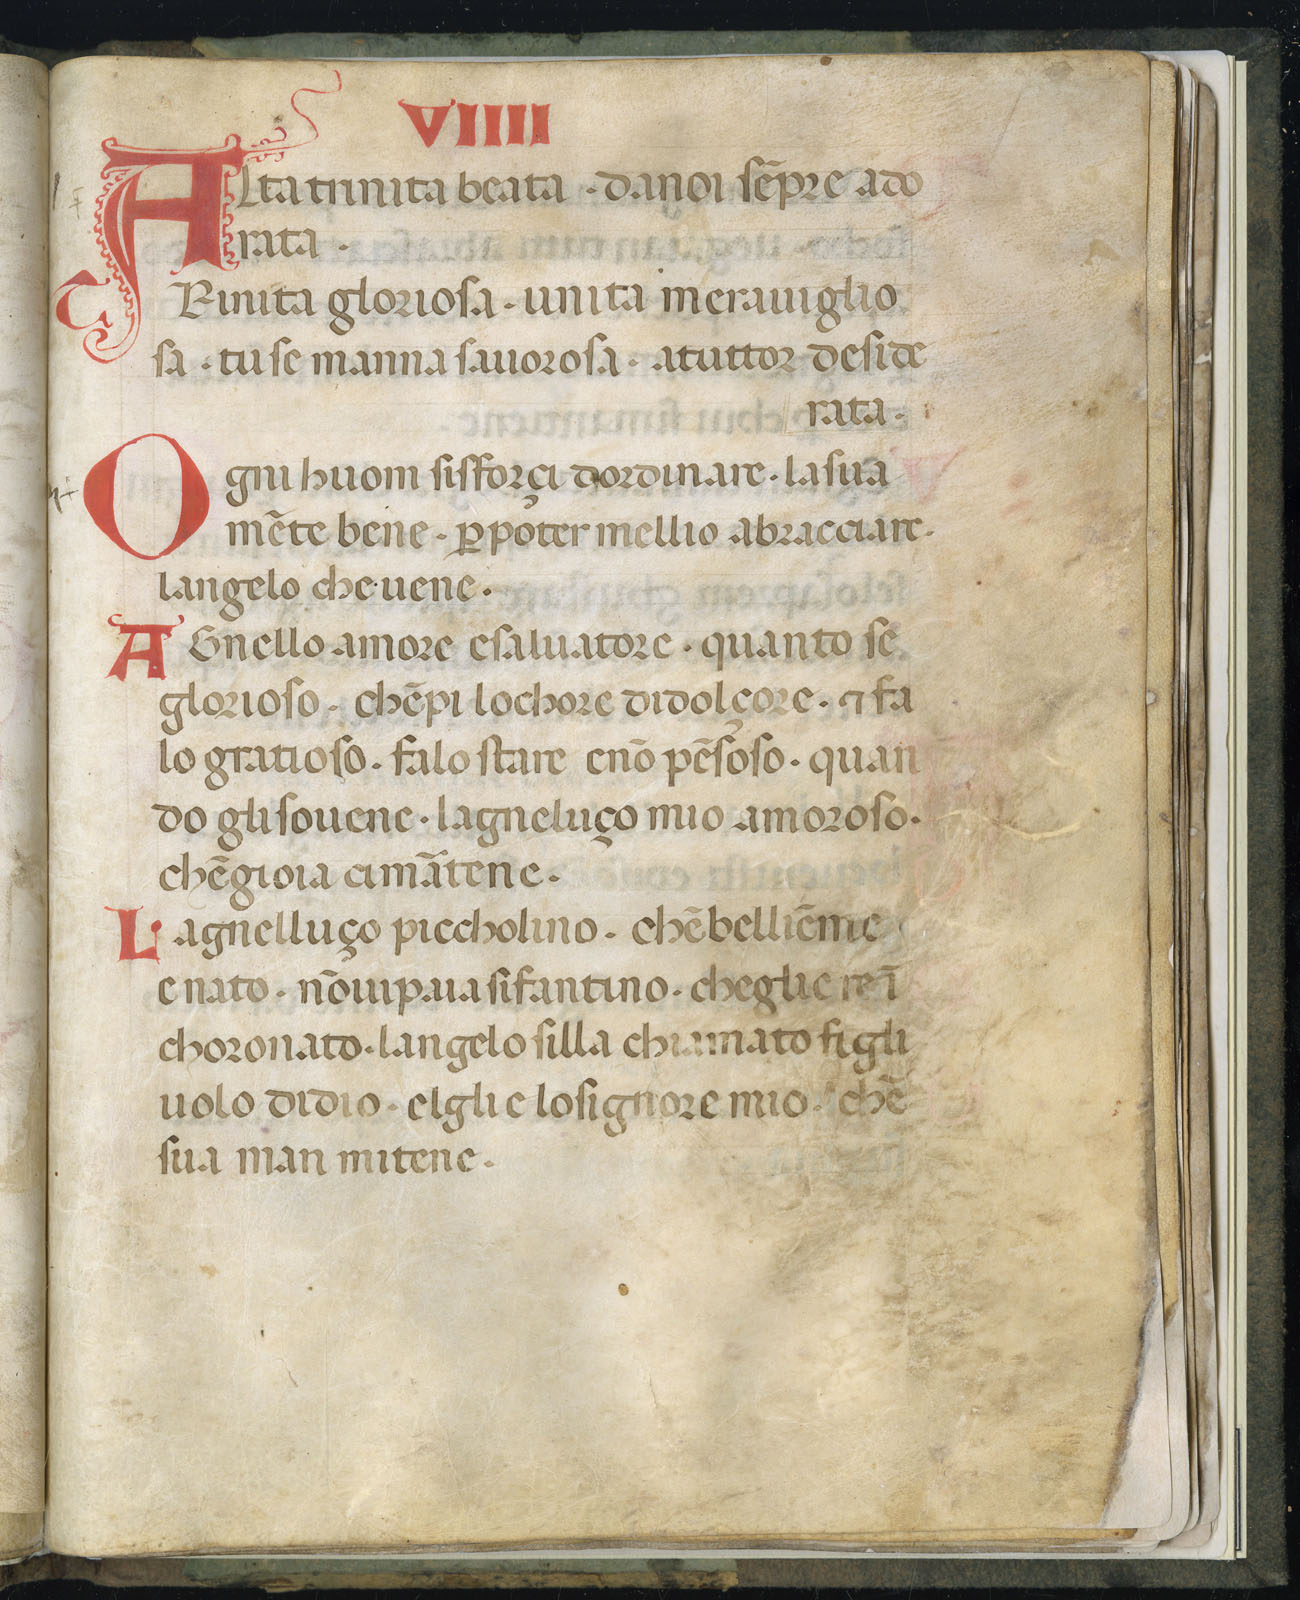 VIIII
Alta trinita beata · da noi sēpre ado
rata ·
Rinita gloriosa · unita merauiglio
sa · tu se manna sauorosa · a tuttor deside
rata ·
Ogni huom sissforçi dordinare · la sua
mēte bene · ꝑ poter mellio abracciare ·
langelo che uene ·
AGnello amore e saluatore · quanto se
glorioso · chēpi lo chore di dolçore · ⁊ fa
lo gratioso · falo stare e nō pēsoso · quan
do gli souene · lagneluço mio amoroso ·
chē gioia ci mātene ·
Lagnelluço piccholino · chē bellieme
e nato · nō ui paua si fantino · che glie re ī
choronato · langelo silla chiamato figli
uolo di dio · elglie lo signore mio · chē
sua man mi tene ·